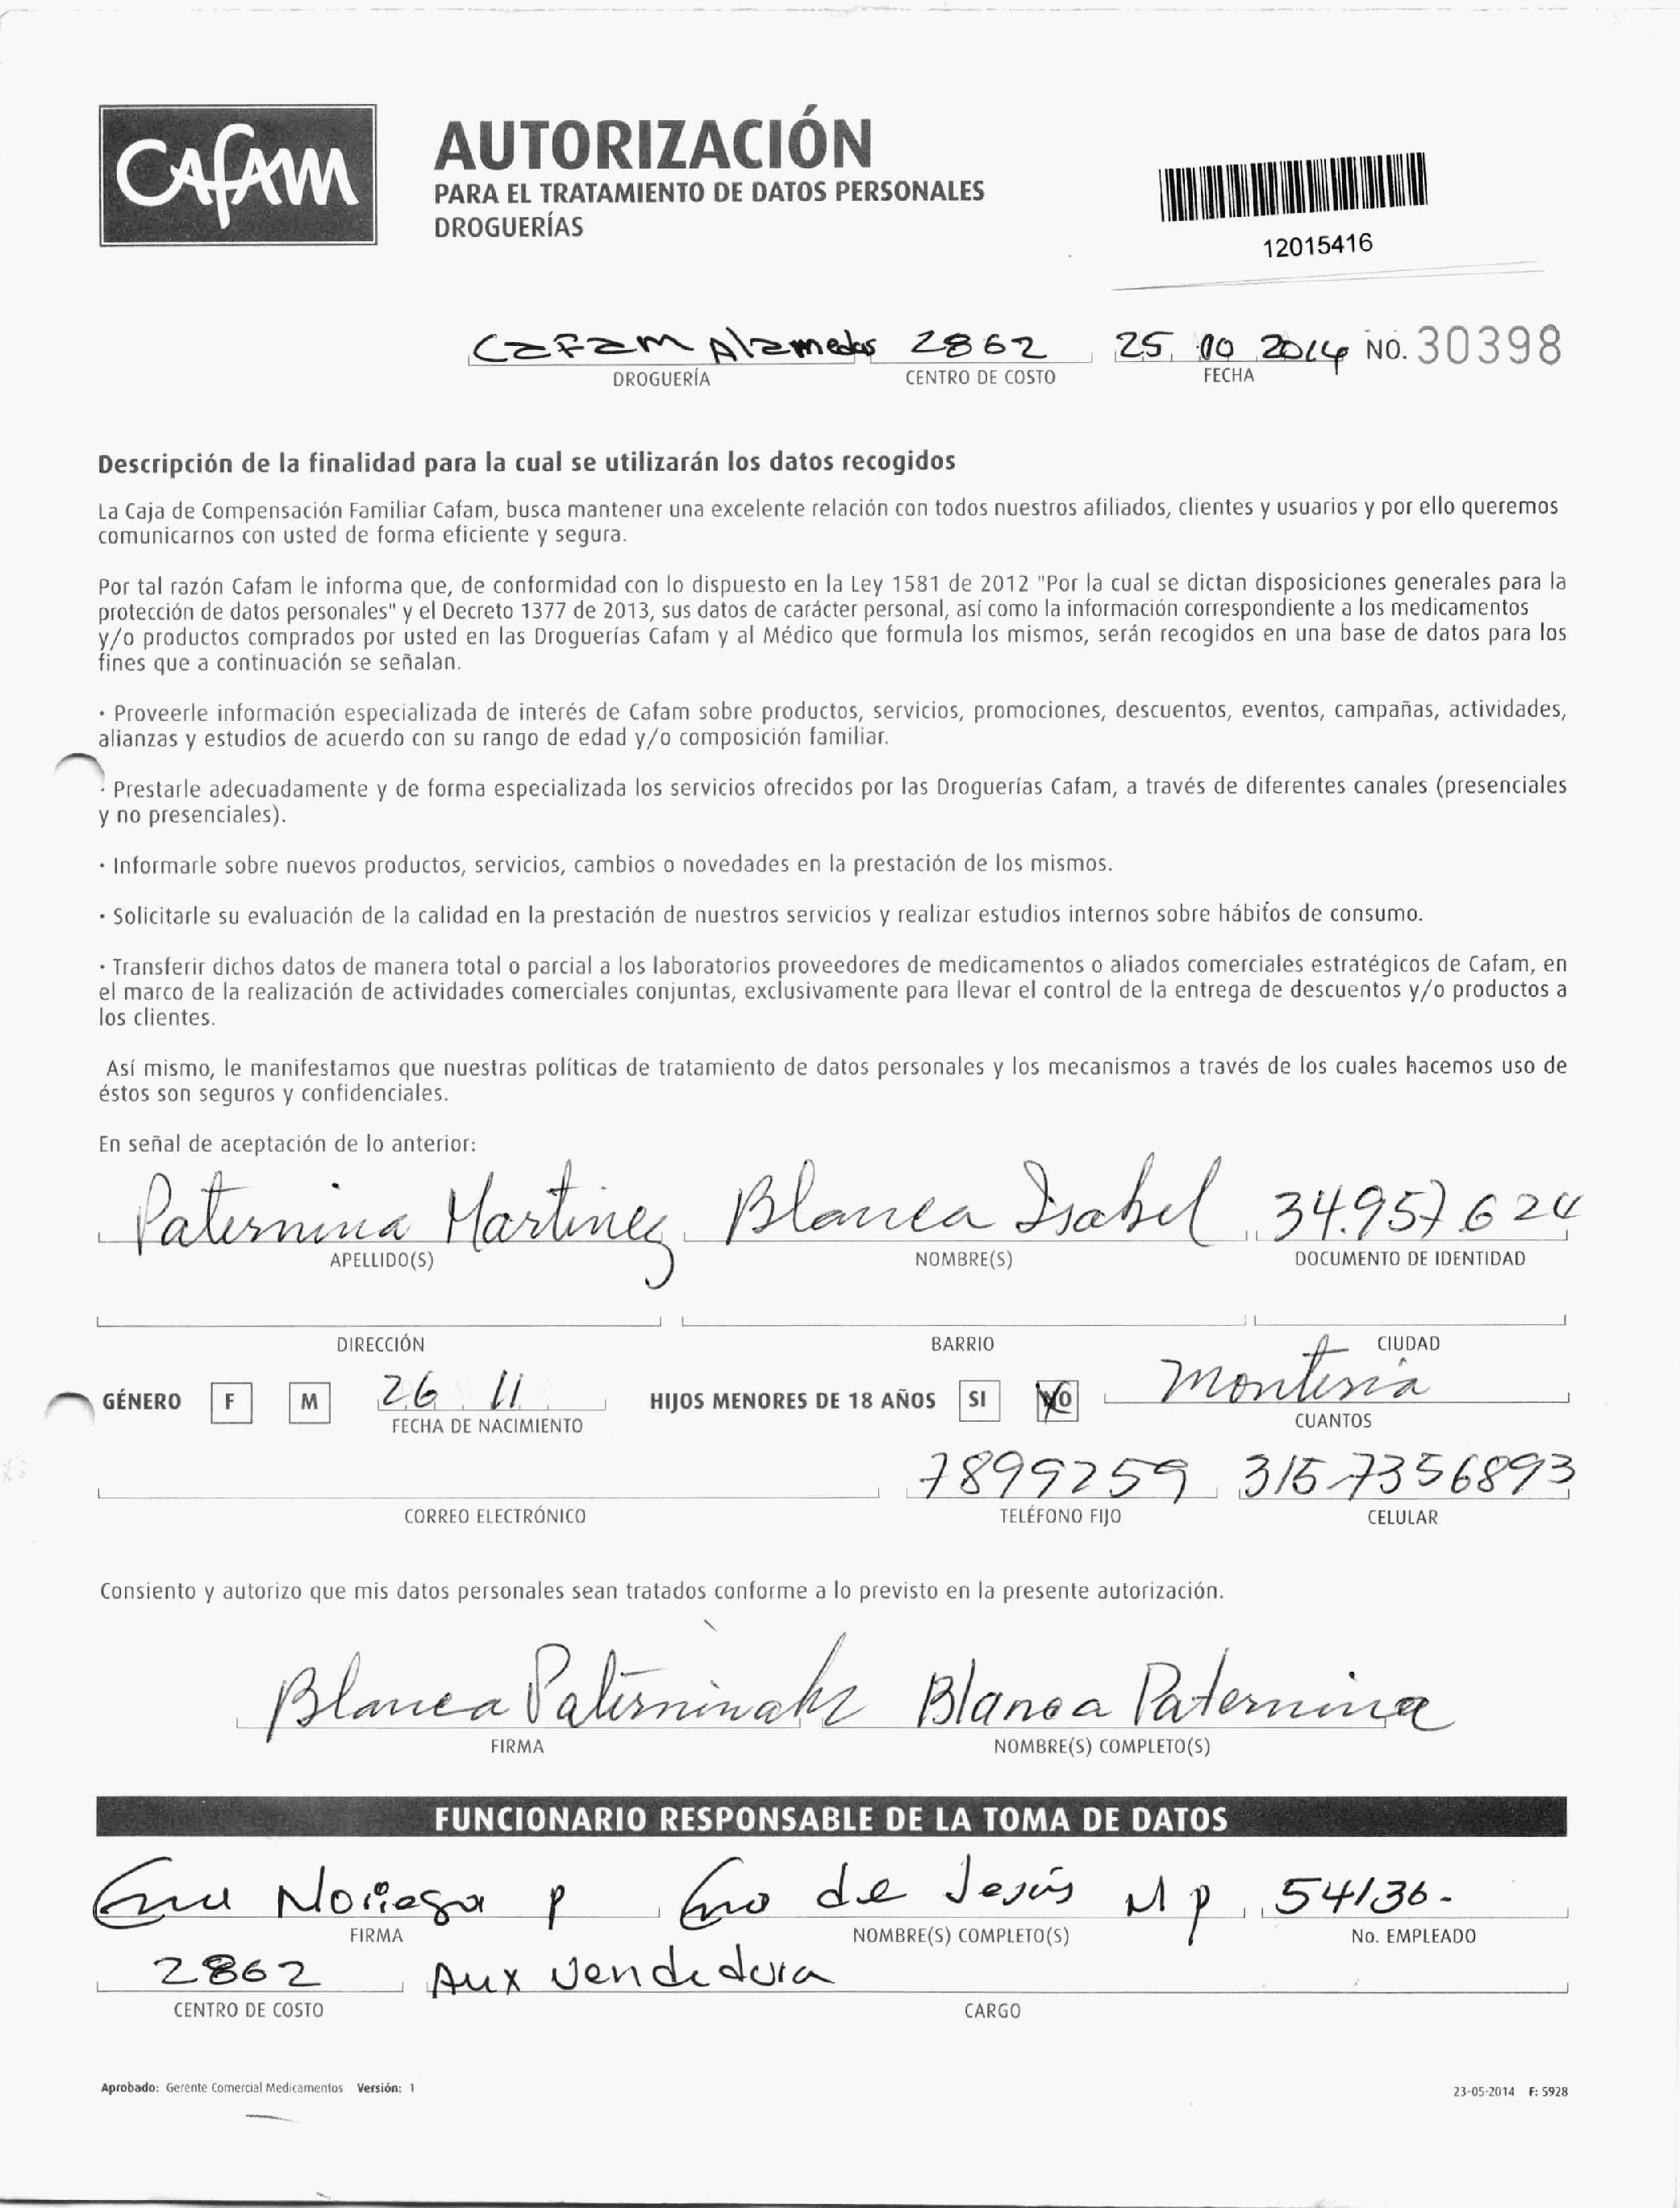 CAFAM
AUTORIZACIÓN
PARA EL TRATAMIENTO DE DATOS PERSONALES
DROGUERÍAS
12015416
Cafam Alamedas 2862 25 10 2014 NO. 30398
DROGUERÍA CENTRO DE COSTO FECHA
Descripción de la finalidad para la cual se utilizarán los datos recogidos
La Caja de Compensación Familiar Cafam, busca mantener una excelente relación con todos nuestros afiliados, clientes y usuarios y por ello queremos
comunicarnos con usted de forma eficiente y segura.
Por tal razón Cafam le informa que, de conformidad con lo dispuesto en la Ley 1581 de 2012 "Por la cual se dictan disposiciones generales para la
protección de datos personales" y el Decreto 1377 de 2013, sus datos de carácter personal, así como la información correspondiente a los medicamentos
y/o productos comprados por usted en las Droguerías Cafam y al Médico que formula los mismos, serán recogidos en una base de datos para los
fines que a continuación se señalan.
· Proveerle información especializada de interés de Cafam sobre productos, servicios, promociones, descuentos, eventos, campañas, actividades,
alianzas y estudios de acuerdo con su rango de edad y/o composición familiar.
· Prestarle adecuadamente y de forma especializada los servicios ofrecidos por las Droguerías Cafam, a través de diferentes canales (presenciales
y no presenciales).
· Informarle sobre nuevos productos, servicios, cambios o novedades en la prestación de los mismos.
· Solicitarle su evaluación de la calidad en la prestación de nuestros servicios y realizar estudios internos sobre hábitos de consumo.
· Transferir dichos datos de manera total o parcial a los laboratorios proveedores de medicamentos o aliados comerciales estratégicos de Cafam, en
el marco de la realización de actividades comerciales conjuntas, exclusivamente para llevar el control de la entrega de descuentos y/o productos a
los clientes.
Así mismo, le manifestamos que nuestras políticas de tratamiento de datos personales y los mecanismos a través de los cuales hacemos uso de
éstos son seguros y confidenciales.
En señal de aceptación de lo anterior:
Paternina Martinez Blanca Isabel 34.957.624
APELLIDO(S) NOMBRE(S) DOCUMENTO DE IDENTIDAD
DIRECCIÓN BARRIO CIUDAD
GÉNERO F M 26 11 HIJOS MENORES DE 18 AÑOS SI NO Montería
FECHA DE NACIMIENTO CUANTOS
7899259 315-7356893
CORREO ELECTRÓNICO TELÉFONO FIJO CELULAR
Consiento y autorizo que mis datos personales sean tratados conforme a lo previsto en la presente autorización.
Blanca Paternina Blanca Paternina
FIRMA NOMBRE(S) COMPLETO(S)
FUNCIONARIO RESPONSABLE DE LA TOMA DE DATOS
Noriega P de Jesús N P 54136-
FIRMA NOMBRE(S) COMPLETO(S) No. EMPLEADO
2862 Aux Vendedora
CENTRO DE COSTO CARGO
Aprobado: Gerente Comercial Medicamentos Versión: 1
23-05-2014 F: 5928